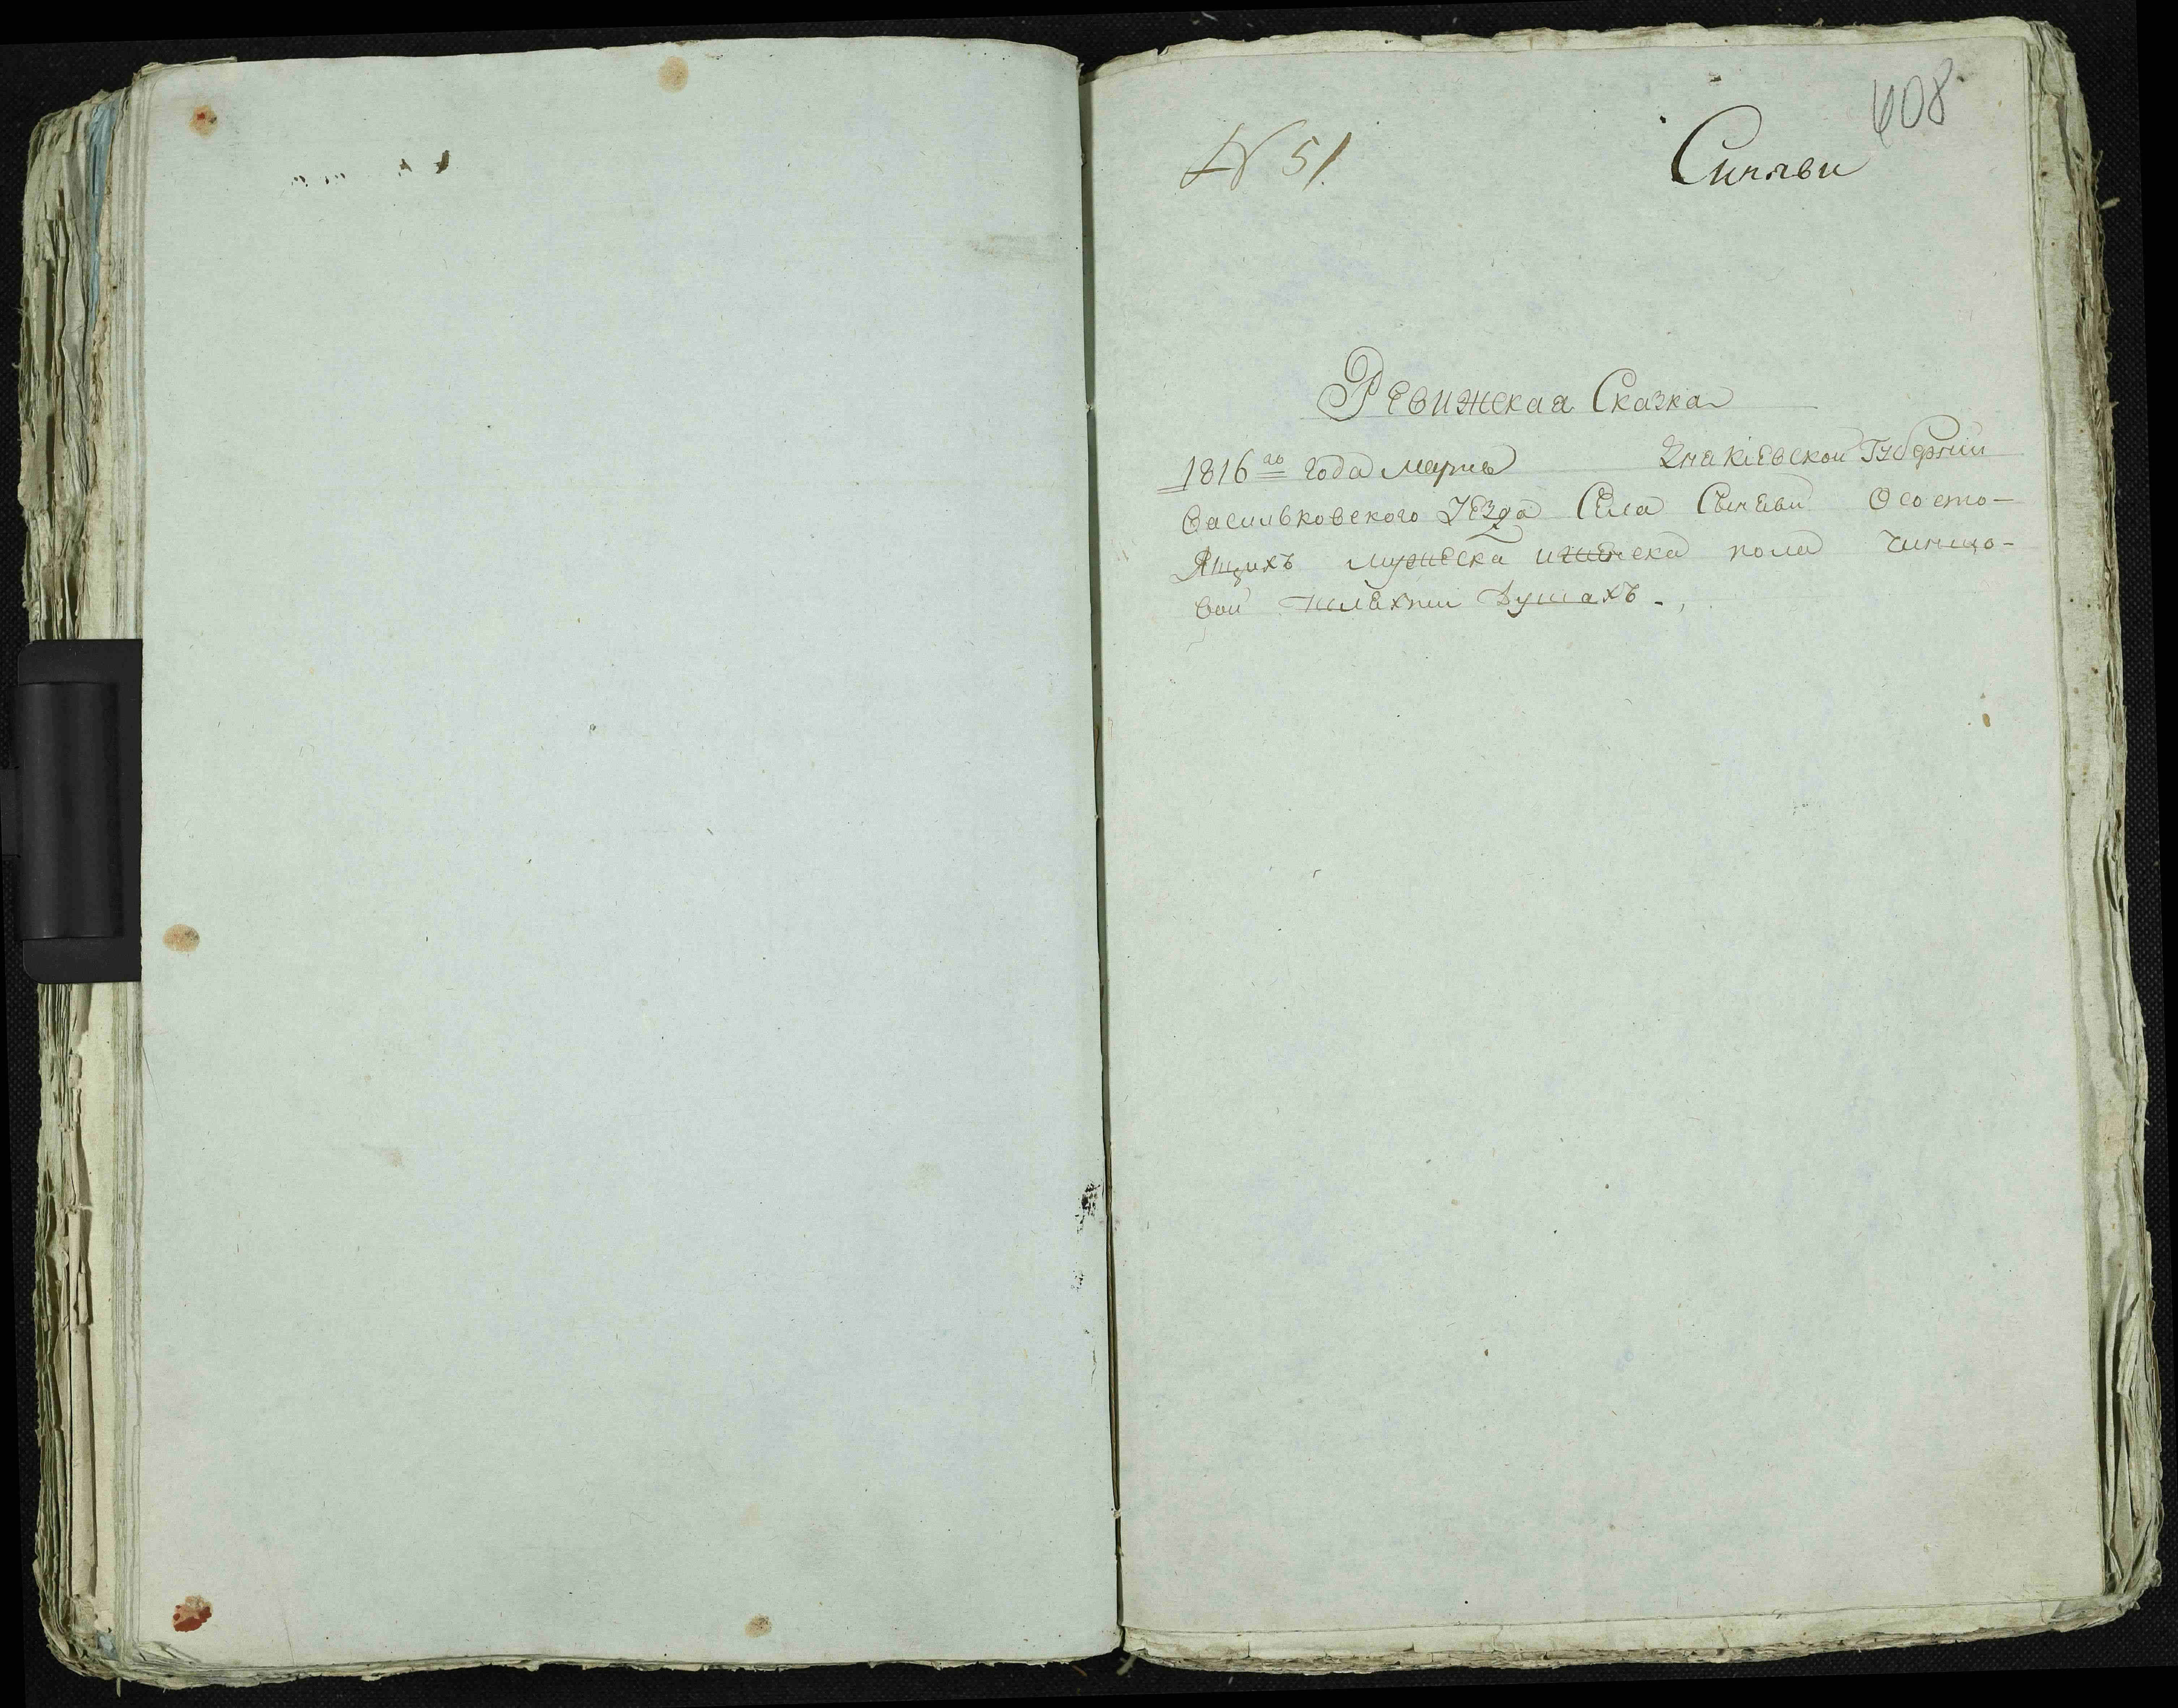 608
N 51.
Синяви
Ревижская Сказка
1816го года марта дня Кіевской Губерніи
Васильковского Уезда Села Сыневи Осостo-
Ящихъ мужеска иженска пола чиншо-
вой шлехти Душахъ.